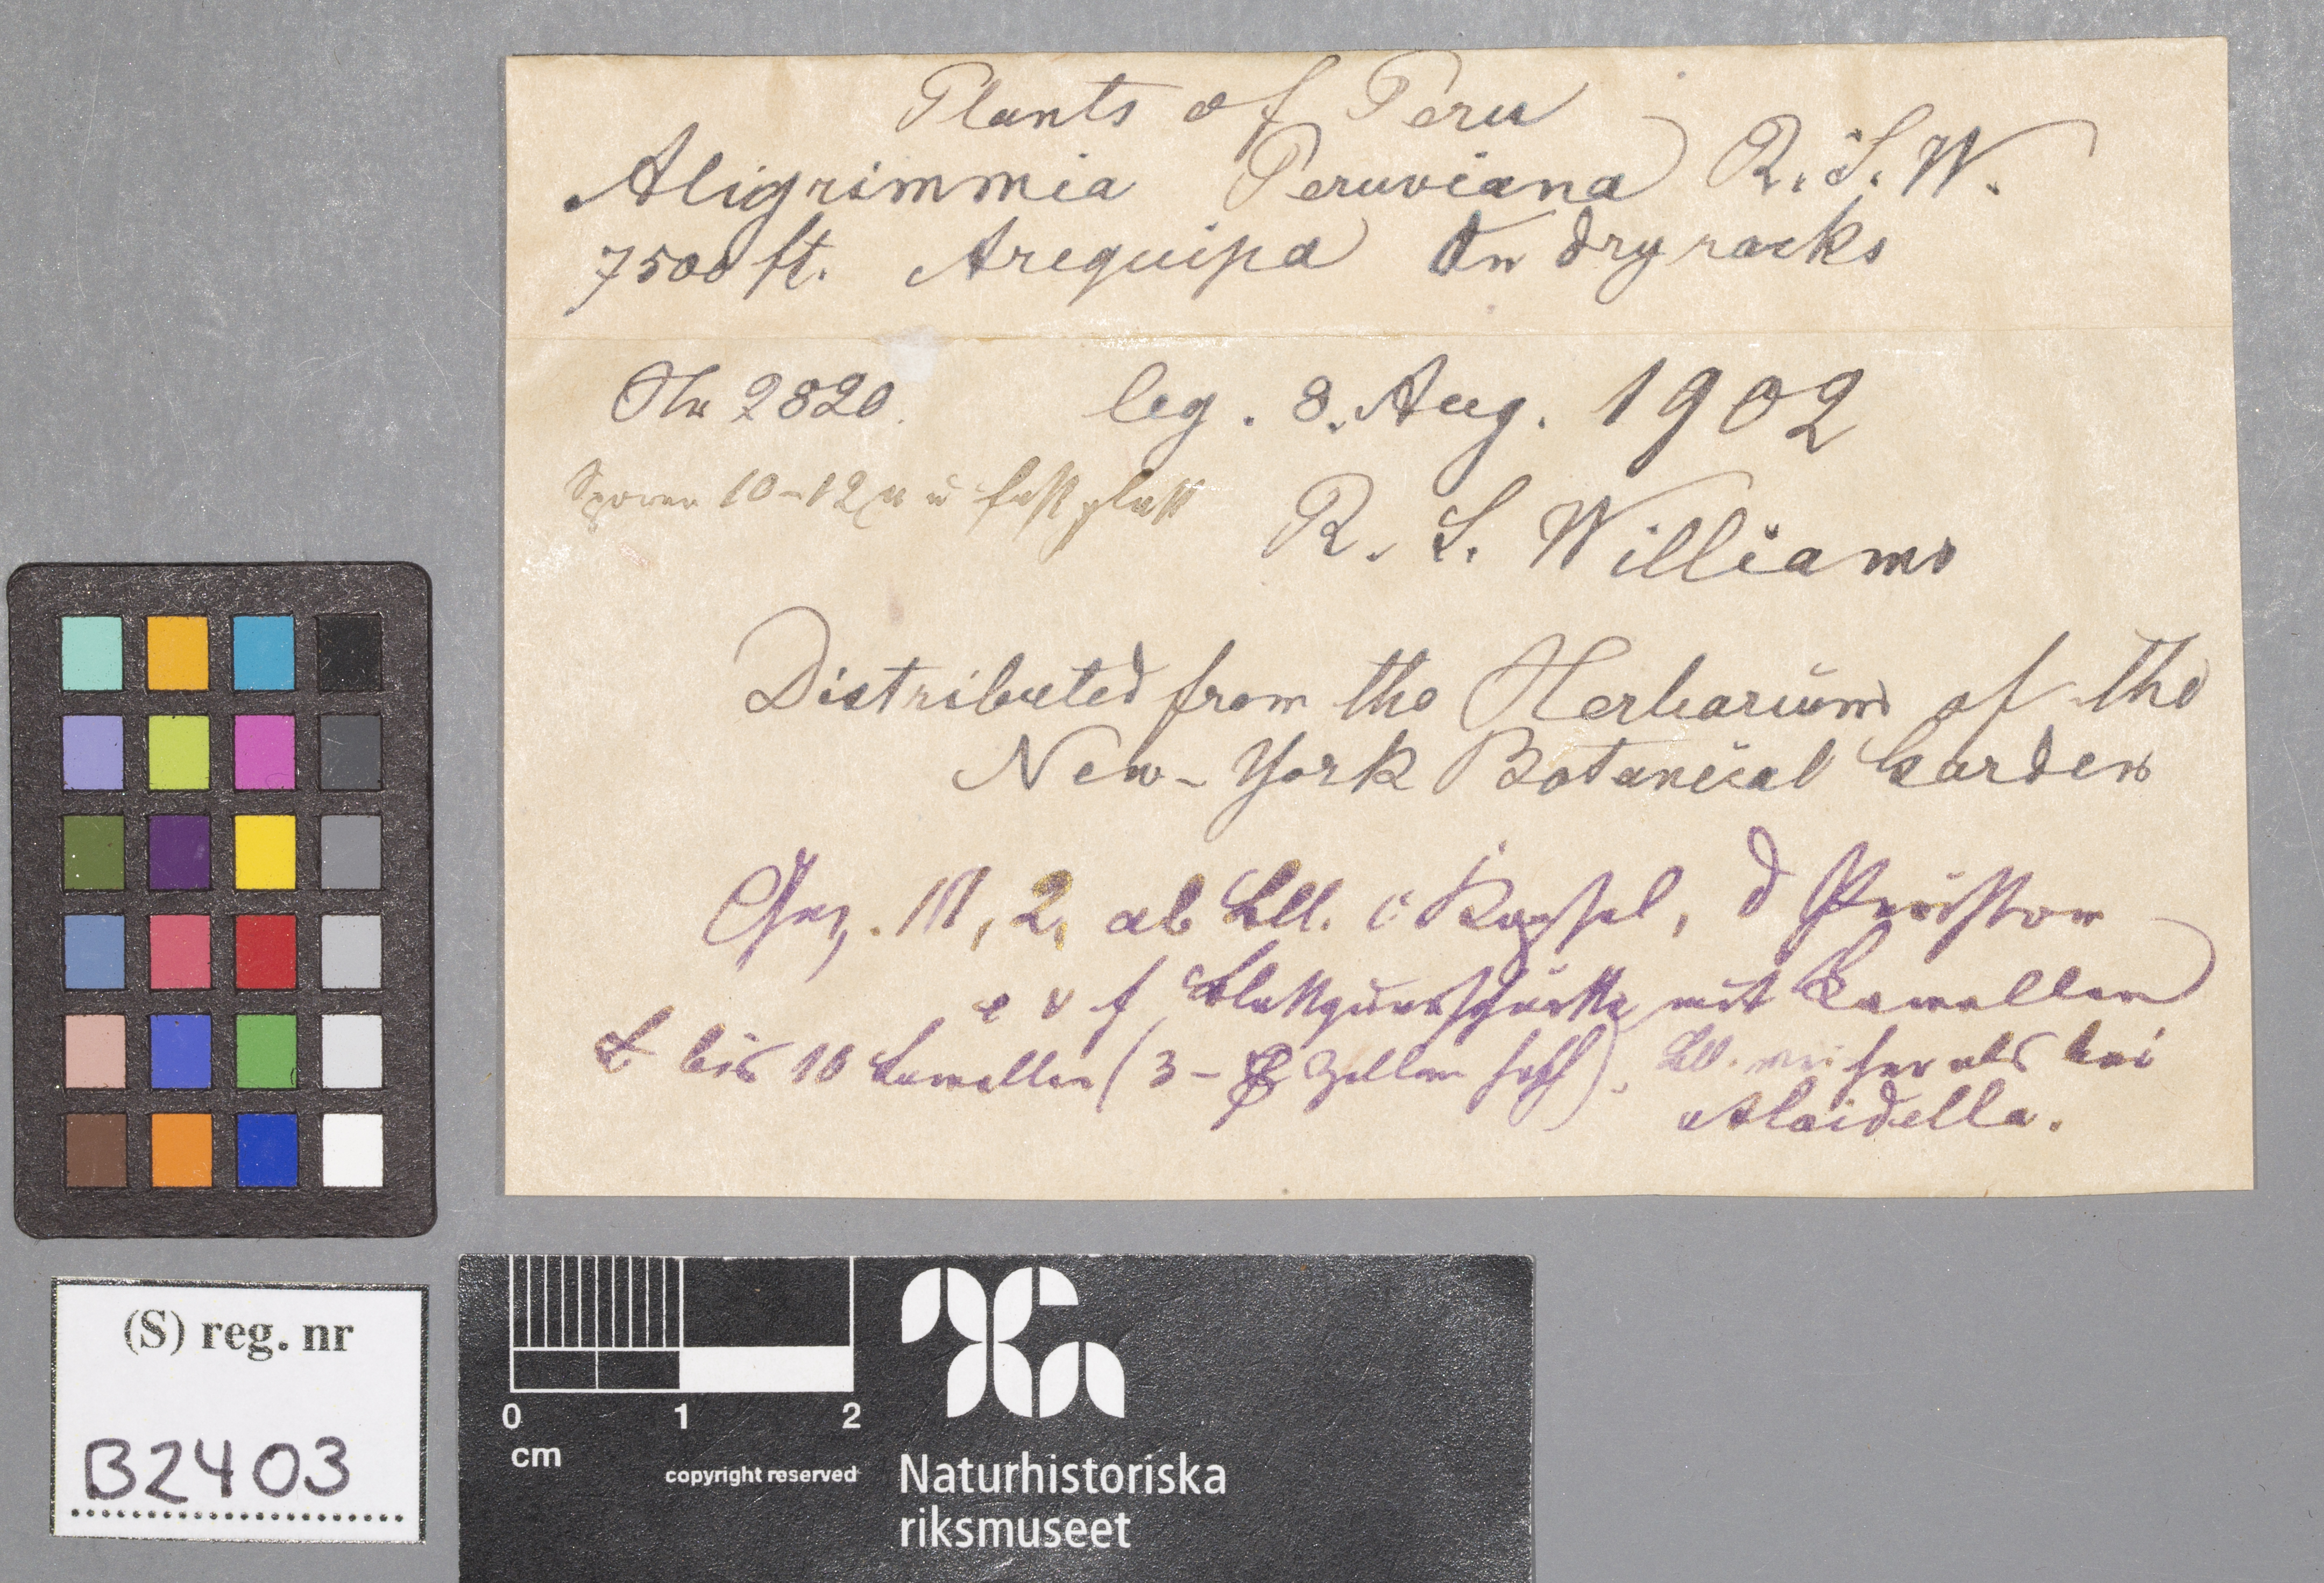 Plants of Peru
Aligrimmia Peruviana R. S. W.
7500 ft. Arequipa On dry rocks
Nr 2820. leg. 8. Aug. 1902
Sporen 10-12 µ u fast glatt
R. S. Williams
Distributed from the Herbarium of the
New-York Botanical Garden
Gez. 111, 2, ab Bll. c Kapsel, d Peristom
e u f Blattquerschnitte mit Lamellen
bis 10 Lamellen (3- Zellen hoch). Bll. als bei
Aloidella.
(S) reg. nr
B2403
0 1 2
cm
copyright reserved
Naturhistoriska
riksmuseet